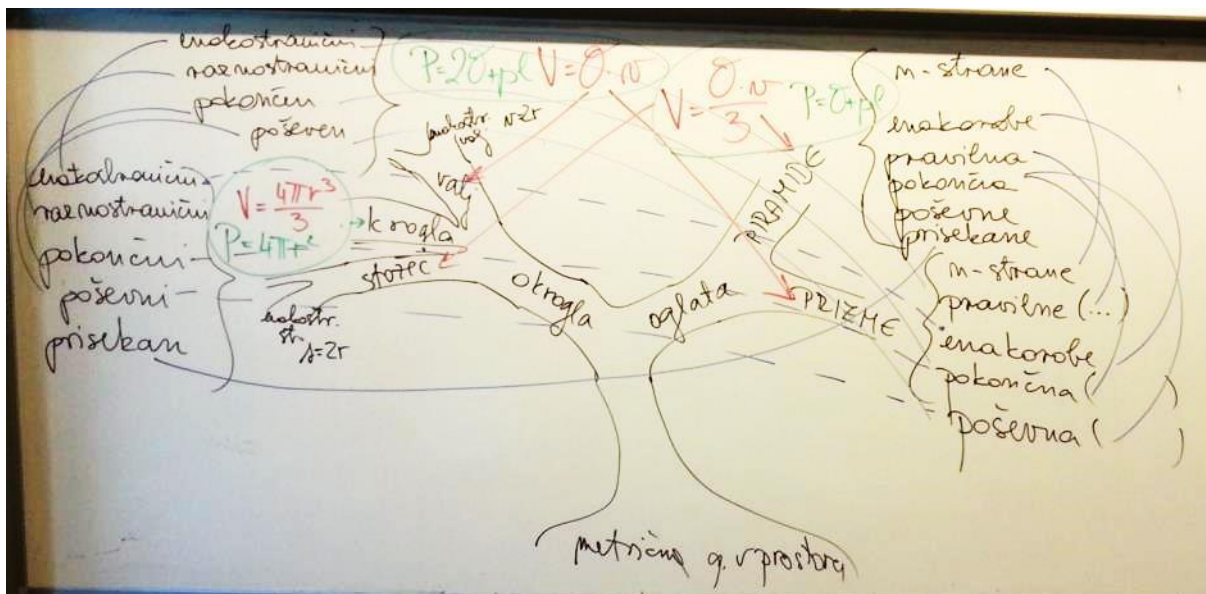 enakostranični
raznostranični
pokončni
poševen
enakostranični
raznostranični
pokončni
poševni
prisekan
P=2O+pl
V=O·v
V=O·v/3
P=O+pl
V=4πr³/3
P=4πr²
enakostr.
valj
v=2r
valj
krogla
stožec
enakostr.
st.
s=2r
okrogla
oglata
PIRAMIDE
PRIZME
n-strane
enakorobe
pravilna
pokončna
poševne
prisekane
n-strane
pravilne (...)
enakorobe
pokončna ( )
poševna ( )
metrična g. v prostoru